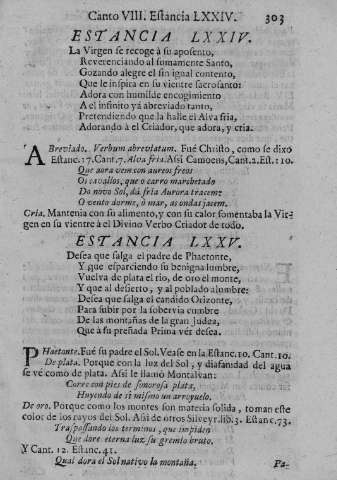 Canto VIII. Estancia LXXIV. 303
ESTANCIA LXXIV.
La Virgen se recoge à su aposento,
Reverenciando al sumamente Santo,
Gozando alegre el sin igual contento,
Que le inspira en su vientre sacrosanto:
Adora con humilde encogimiento
A el infinito yá abreviado tanto,
Pretendiendo que la halle el Alva fria,
Adorando à el Criador, que adora, y cria.
ABreviado. Verbum abreviatum. Fué Christo, como se dixo
Estanc. 17. Cant. 7. Alva fria. Assi Camoens, Cant. 2. Est. 110.
Que aora vem con aureos freos
Oi cavallos, que o carro marchetado
Do novo Sol, da fria Aurora traceme
O vento dorme, o mar, as ondas jacem.
Cria. Mantenia con su alimento, y con su calor fomentaba la Vir-
gen en su vientre à el Divino Verbo Criador de todo.
ESTANCIA LXXV.
Desea que salga el padre de Phaetonte,
Y que esparciendo su benigna lumbre,
Vuelva de plata el rio, de oro el monte,
Y que al desierto, y al poblado alumbre:
Desea que salga el candido Orizonte,
Para subir por la sobervia cumbre
De las montañas de la gran Judea,
Que à su preñada Prima vér desea.
PHaetonte. Fué su padre el Sol. Vease en la Estanc. 10. Cant. 10.
De plata. Porque con la luz del Sol, y diafanidad del agua
se vé como de plata. Assi le llamó Montalvan:
Corre con pies de sonorosa plata,
Huyendo de si mismo un arroyuelo.
De oro. Porque como los montes son materia solida, toman este
color de los rayos del Sol. Assi de otros Silveyr. lib. 3. Estanc. 73.
Traspassando los terminos, que impiden
Que dore eterna luz su gremio bruto.
Y Cant. 12. Estanc. 41.
Qual dora el Sol nativo la montaña.
Pa-